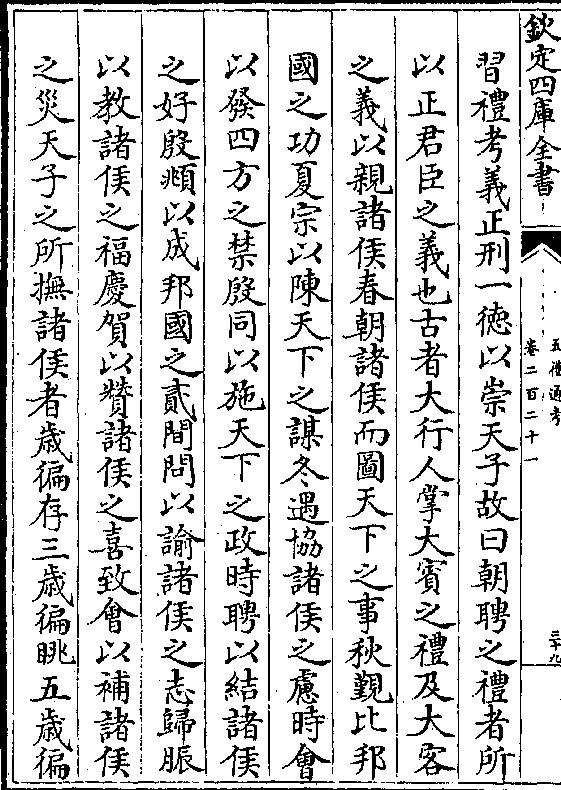 欽定四庫全書
五禮通考
卷二百二十一
三十九
習禮考義正刑一徳以崇天子故曰朝聘之禮者所
以正君臣之義也古者大行人掌大賓之禮及大客
之義以親諸侯春朝諸侯而圖天下之事秋覲比邦
國之功夏宗以陳天下之謀冬遇協諸侯之慮時會
以發四方之禁殷同以施天下之政時聘以結諸侯
之好殷頫以成邦國之貳間問以諭諸侯之志歸脤
以教諸侯之福慶賀以贊諸侯之喜致會以補諸侯
之災天子之所撫諸侯者歳徧存三歳徧眺五歳徧